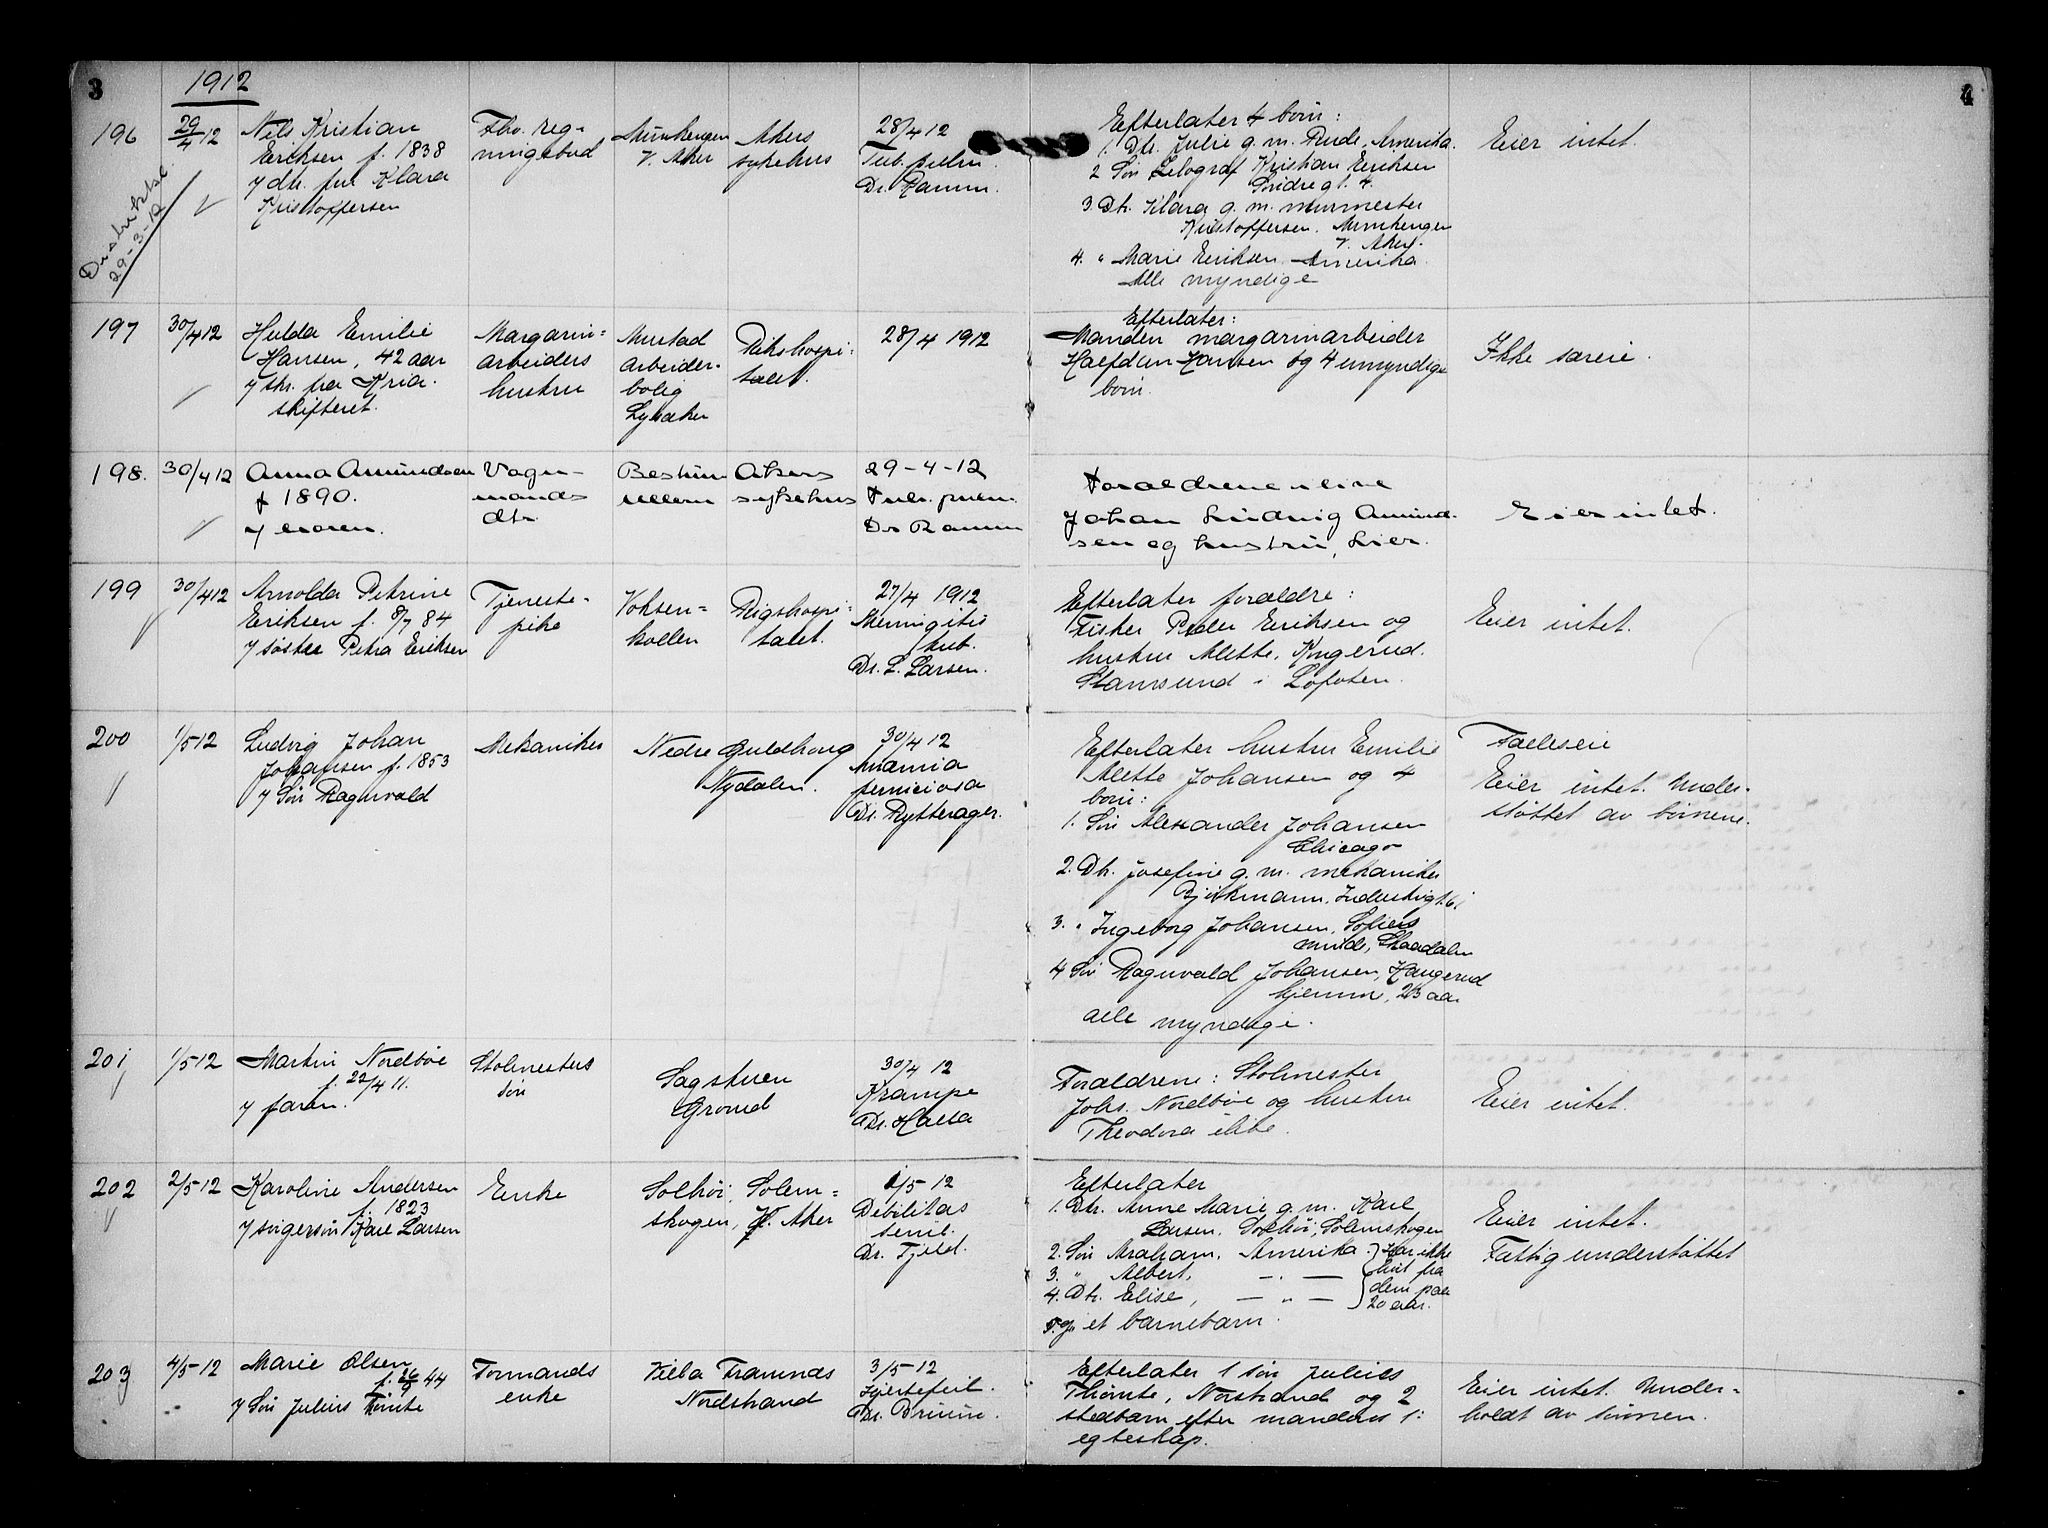 3
1912
4
196
29/4 12
Nils Kristian
Eriksen f. 1838
v/ dtr. fru Klara
Kristoffersen
Fhv. reg-
ningsbud
Munkengen
V. Aker
Akers
sykehus
28/4 12
Tub. pulm.
Dr. Ramm.
Efterlater 4 børn:
1. Dtr. Julie g. m. Rude, Amerika.
2 Søn Litograf Kristian Eriksen
Søndre gt. 4.
3 Dtr. Klara g. m. murmester
Kristoffersen. Munkengen
V. Aker.
4. " Marie Eriksen. Amerika.
Alle myndige
Eier intet.
29-3-12
197
30/4 12
Hulda Emilie
Hansen, 42 aar
v/ skr. fra Kria.
skifteret.
Margarin=
arbeiders
hustru
Mustad
arbeider-
bolig
Lysaker
Rikshospi-
talet.
28/4 1912
Efterlater:
Manden margarinarbeider
Halfdan Hansen og 4 umyndige
børn.
Ikke særeie.
198.
30/4 12
Anna Amundsen
f 1890.
v/ moren.
Vogn-
mands
dtr.
Bestum
Ullern
Akers
sykehus
29-4-12
Tub. pulm.
Dr Ramm
Forældrene i live
Johan Ludvig Amund-
sen og hustru, Lier.
Eier intet.
199
30/4 12
Arnolda Petrine
Eriksen f. 8/7 84
v/ søster Petra Eriksen
Tjeneste-
pike
Voksen=
kollen
Rigshospi-
talet.
27/4 1912
Meningitis
tub.
Dr. L. Larsen.
Efterlater forældre:
Fisker Peder Eriksen og
hustru Mette, Kngerud.
Stamsund i Lofoten.
Eier intet.
200
1/5 12
Ludvig Johan
Johansen f. 1853
v/ Søn Ragnvald
Mekaniker
Nedre Guldhaug
Nydalen.
30/4 12
Anæmia
perniciosa
Dr. Rytterager.
Efterlater hustru Emilie
Mette Johansen og 4
børn:
1. Søn Alexander Johansen
Chicago
2. Dtr. Josefine g. m. mekaniker
Bjørkmann, Industrigt. 61
3. " Ingeborg Johansen, Sofies
minde, Skaadalen
4 Søn Ragnvald Johansen, Haugerud
hjemm, 23 aar
alle myndige.
Fælleseie
Eier intet. Under-
støttet av børnene.
201
1/5 12
Martin Nordbøe
f. 22/4 11.
v/ faren.
Stolmesters
søn
Sagstuen
Grorud
30/4 12
Krampe
Dr. Halsa
Forældrene: Stolmester
Johs. Nordbøe og hustru
Theodora i live.
Eier intet.
202
2/5 12
Karoline Andersen
f. 1823
v/ svigersøn Karl Larsen
Enke
Solhøi, Solem=
skogen, V. Aker
1/5 12
Debilitas
senil.
Dr. Fjeld.
Efterlater
1. Dtr. Anne Marie g. m. Karl
Larsen, Solhøi, Solemskogen
2. Søn Abraham, Amerika. } Har ikke
3. " Albert, — " — } hørt fra
4. Dtr. Elise, — " — } dem paa
20 aar.
og et barnebarn.
Eier intet.
Fattigunderstøttet
203
4/5 12
Marie Olsen
f. 26/9 44
v/ Søn Julius Tømte
Formands
enke
Villa Framnæs
Nordstrand
3/5 12
Hjertefeil.
Dr. Bruun.
Efterlater 1 søn Julius
Thømte, Norstrand og 2
stedbarn efter mandens 1:
egteskap.
Eier intet. Under=
holdt av sønnen.